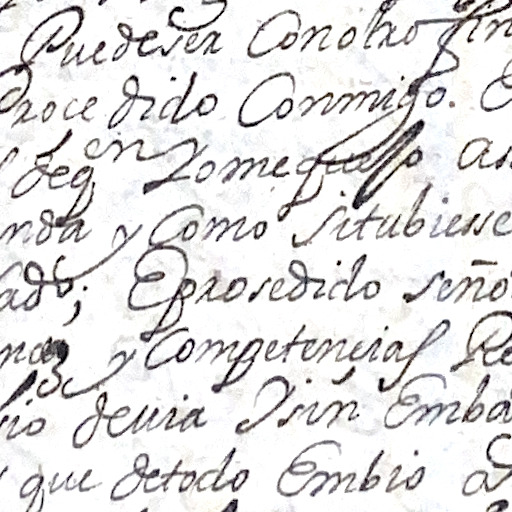 Puede ser Con otro fin
Procedido Conmigo. E
deq en Yo me quesso as
nda y Como situbiesse
ado; E prosedido seño
y Competencias Re
io deuia Y sin Emba
que de todo Embio a